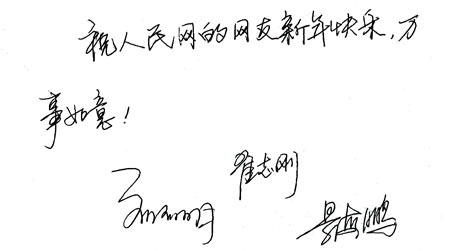 祝人民网的网友新年快乐,万
事如意!
翟志刚
景海鹏